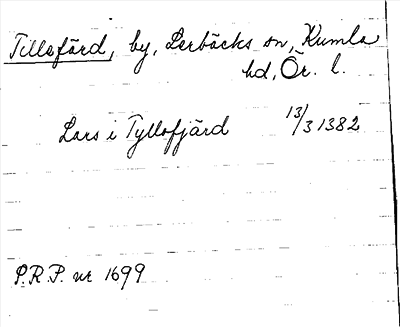 Tillofärd, by, Lerbäcks sn, Kumla
hd, Ör. l.
Lars i Tyllofjärd 13/3 1382
P.R.P. nr 1699